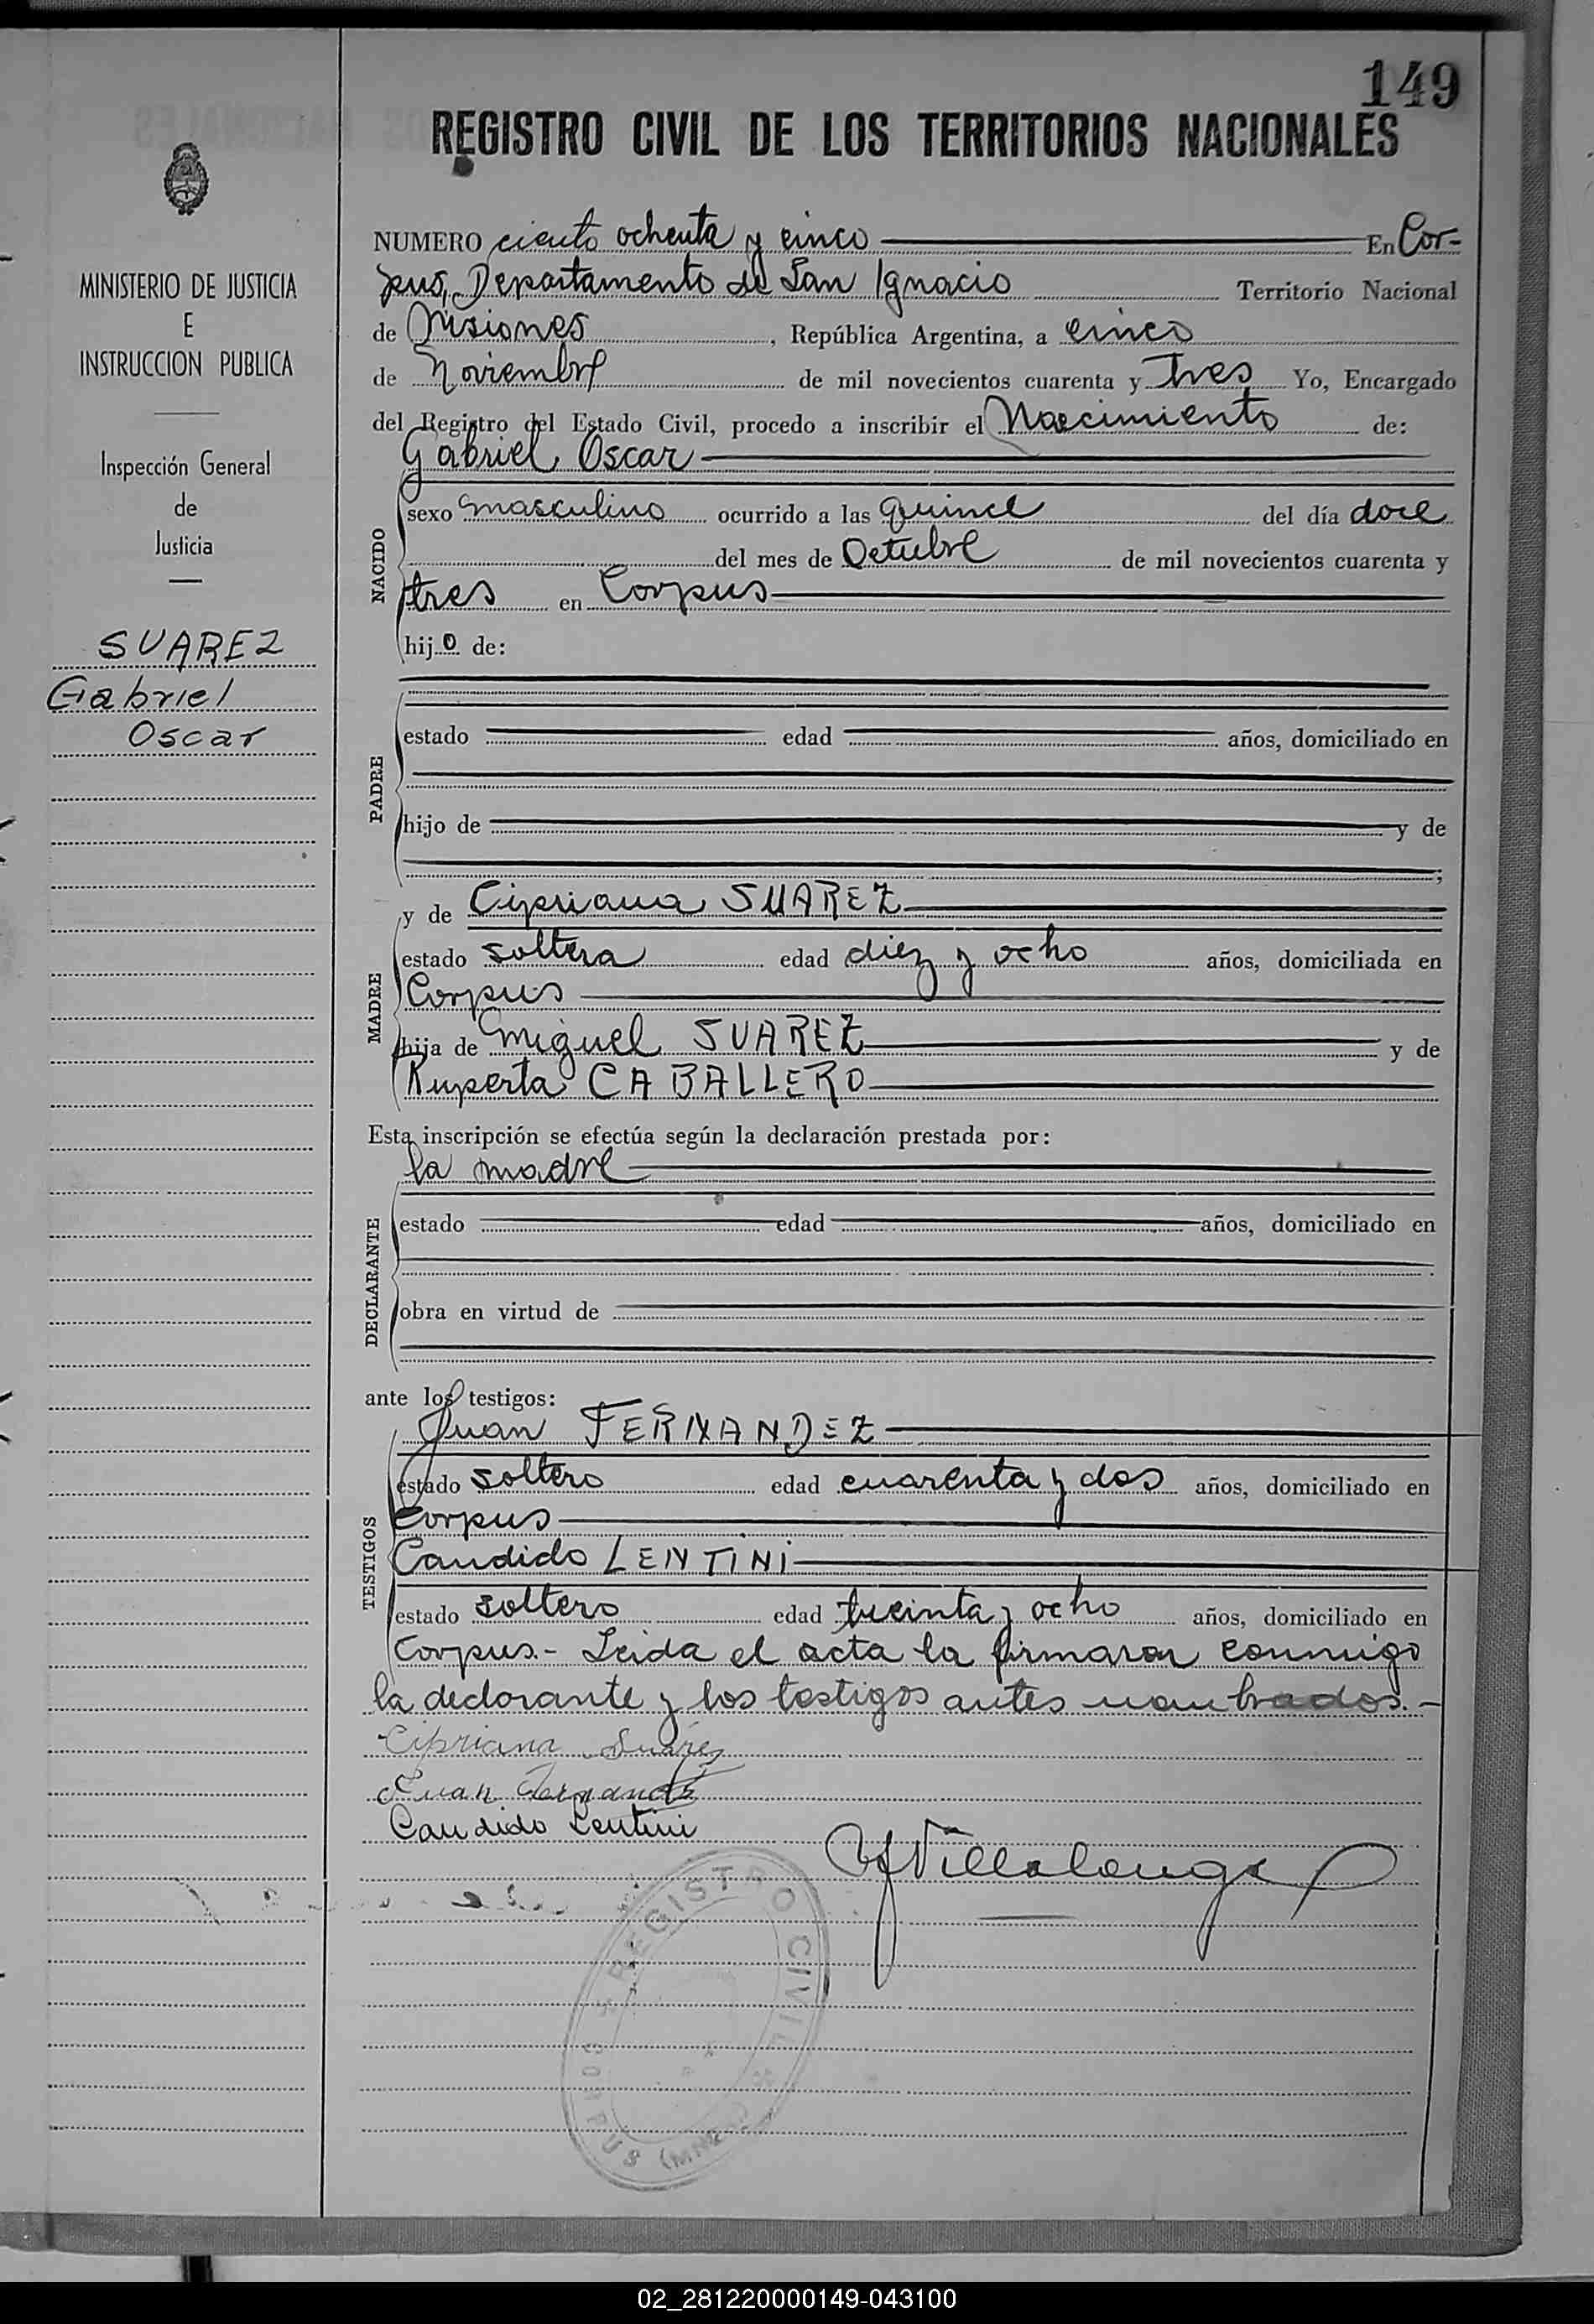 149
REGISTRO CIVIL DE LOS TERRITORIOS NACIONALES
MINISTERIO DE JUSTICIA
E
INSTRUCCION PUBLICA
Inspección General
de
Justicia
SUAREZ
Gabriel
Oscar
NUMERO ciento ochenta y cinco En Cor-
pus, Departamento de San Ignacio Territorio Nacional
de Misiones, República Argentina, a cinco
de Noviembre de mil novecientos cuarenta y tres Yo, Encargado
del Registro del Estado Civil, procedo a inscribir el Nacimiento de:
Gabriel Oscar
NACIDO
sexo masculino ocurrido a las quince del día doce
del mes de Octubre de mil novecientos cuarenta y
tres en Corpus
hijo de:
PADRE
estado edad años, domiciliado en
hijo de y de
;
y de Cipriana SUAREZ
MADRE
estado soltera edad diez y ocho años, domiciliada en
Corpus
hija de Miguel SUAREZ y de
Ruperta CABALLERO
Esta inscripción se efectúa según la declaración prestada por:
la madre
DECLARANTE
estado edad años, domiciliado en
obra en virtud de
ante los testigos:
Juan FERNANDEZ
TESTIGOS
estado soltero edad cuarenta y dos años, domiciliado en
Corpus
Candido LENTINI
estado soltero edad treinta y ocho años, domiciliado en
Corpus.- Leida el acta la firmaron conmigo
la declarante y los testigos antes nombrados.-
Cipriana Suárez
Juan Fernandez
Candido Lentini
Villalonga
REGISTRO CIVIL
CORPUS (MNES)
02_281220000149-043100